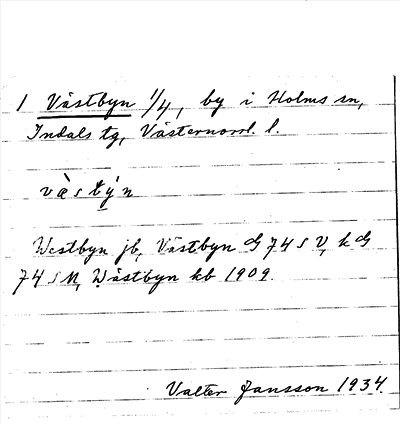 1 Västbyn 1/4, by i Holms sn,
Indals tg, Västernorrl. l.
væ̀stýn
Westbyn jb, Västbyn G 74 S V, k G
74 S N, Wästbyn kb 1909.
Valter Jansson 1934.